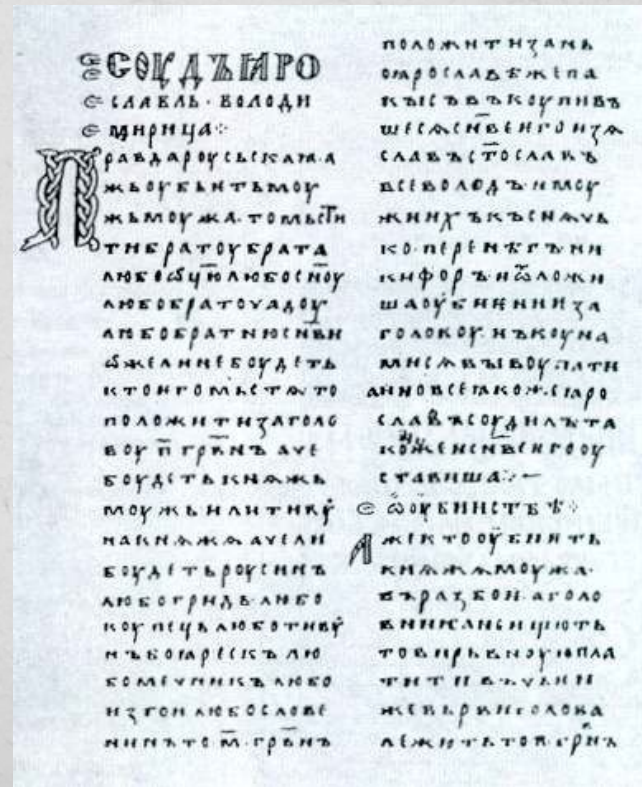 СОУДЪ ꙖРО
СЛАВЛЬ · ВОЛОДИ
МИРИЦА ·:·
Правда роусьскаꙗ · а
жь оубьить моу
жь моужа · то мьстити
брату брата
любо ѡц҃ю любо с҃ноу
любо братоучадоу
любо братню с҃нви
ѡже ли не боудеть
кто ѥго мьстѧ то
положити за голо
воу п҃ грв҃нъ аче
боудеть кнѧжь
моужь или тиву
на кнѧжа аче ли
боудеть роусинъ
любо гридь любо
коупець любо тиву
нъ боꙗрескъ лю
бо мечникъ любо
изгои любо слове
нинъ то м҃ · грв҃нъ
положити за нь
по ꙗрославѣ же па
кы съвъкоупивъ
шесѧ с҃нве ѥго изѧ
славъ ст҃ославъ
всеволодъ и моу
жи ихъ къснѧчь
ко перенѣгъ ни
кифоръ и ѿложи
ша оубиѥниѥ за
головоу нъ коуна
ми сѧ выкоупати
а ино все ꙗкоже ꙗро
славъ соудилъ та
коже и с҃нве ѥго оу
ставиша ·:·
ѡ оубииствѣ ·:·
Аже кто оубиить
кнѧжа моужа
въ разбои · а голо
вника не ищють
то вирьвноую пла
тити въ чьѥи
же вьрви голова
лежить то п҃ грв҃нъ